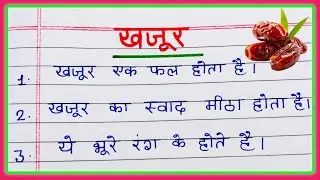 खजूर
1. खजूर एक फल होता है।
2. खजूर का स्वाद मीठा होता है।
3. ये भूरे रंग के होते है।